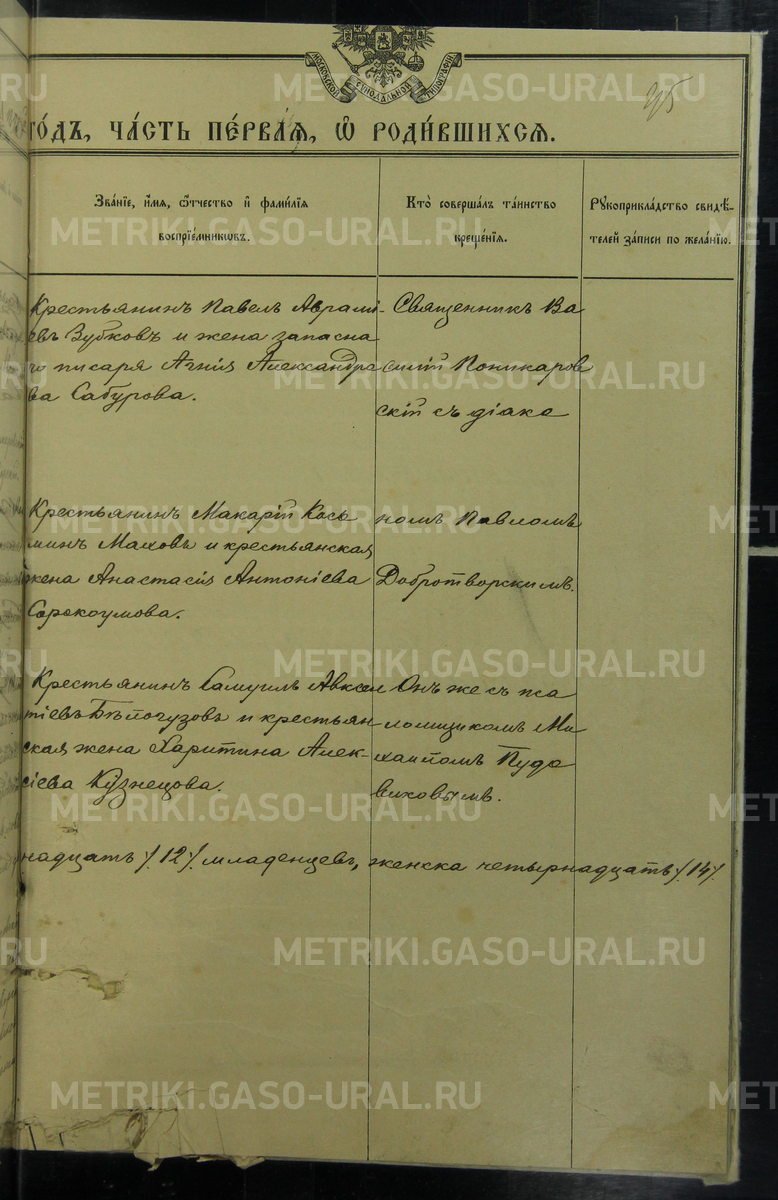 МОСКОВСКОЙ СѴНОДАЛЬНОЙ ТИПОГРАФІИ
ГОДЪ, ЧА́СТЬ ПЕ́РВАѦ, Ѽ РОДИ́ВШИХСѦ.
Зва́нїе, и҆́мѧ, ѻ҆́тчество и҆ фами́лїѧ
воспрїе́мникѡвъ.
Кто̀ соверша́лъ та́инство
креще́нїѧ.
Рꙋкоприкла́дство свидѣ́-
телей за́писи по жела́нїю.
Крестьянинъ Павелъ Аврамі-
евъ Зубковъ и жена запасна
го писаря Агнія Александро
ва Сабурова.
Священникъ Ва
силій Поникаров
скій съ діако
Крестьянинъ Макарій Кось
минъ Маховъ и крестьянская
жена Анастасія Антоніева
Сорокоумова.
номъ Павломъ
Добротворскимъ.
Крестьянинъ Самуилъ Авксен
тіевъ Бѣлогузовъ и крестьян
ская жена Харитина Алек-
сіева Кузнецова.
Онъ же съ пса
ломщикомъ Ми
хаиломъ Пудо
виковымъ.
надцать /.12/. младенцевъ, женска четырнадцать /.14/.
METRIKI.GASO-URAL.RU